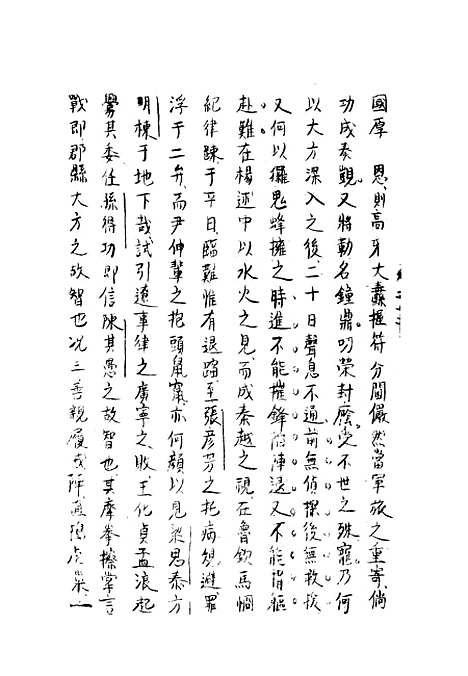 國厚　恩則高牙大纛握符分閫儼然當軍旅之重寄倘
功成奏觀又將勒名鐘鼎叨榮封廕受不世之殊寵乃何
以大方深入之後二十日聲息不通前無偵探後無救援
又何以玀鬼蜂擁之時進不能摧鋒陷陣退又不能捐軀
赴難在楊述中以水火之見而成秦越之視在魯欽馬炯
紀律踈于平日臨難惟有退踏至張彥芳之托病規避罪
浮于二弁而尹伸輩之抱頭鼠竄亦何顔以見梁思泰方
明棟于地下哉試引遼事律之廣寧之敗王化貞孟浪起
釁其委任孫得功即信陳其愚之故智也其摩拳擦掌言
戰即郡縣大方之故智也况三善親履戎陣直搗虎巢